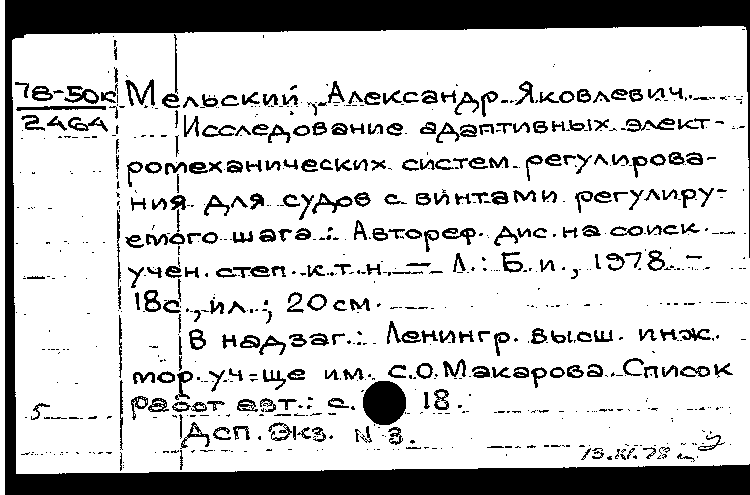 78-50к Мельский, Александр Яковлевич.
2464 Исследование адаптивных элект-
ромеханических систем регулирова-
ния для судов с винтами регулиру-
емого шага.: Автореф. дис. на соиск.
учен. степ. к.т.н. — Л.: Б.и., 1978. -
18с., ил.; 20см.
В надзаг.: Ленингр. высш. инж.
мор. уч-ще им. С.О.Макарова. Список
5 работ авт.: с. 18.
Дсп. Экз. N 3.
13.XI.78